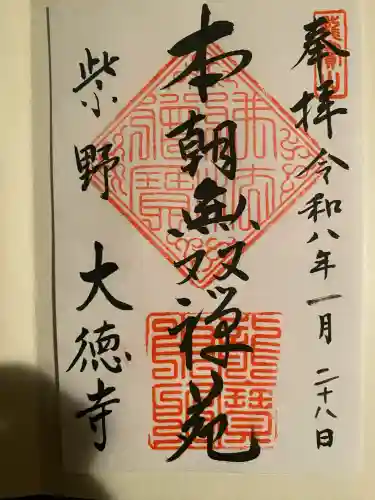 奉拝 令和八年一月二十八日
本朝無双禅苑
紫野 大徳寺
龍寳山